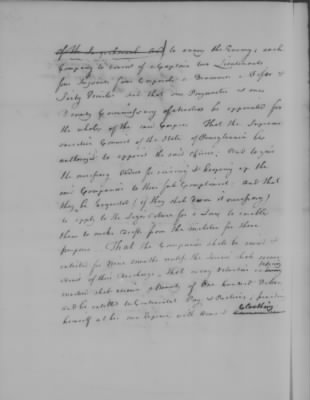 to annoy the Enemy; each
Company to consist of a Captain two Lieutenants
four Serjeants four Corporals a Drummer a Fifer &
Sixty Privates and that one Paymaster & one
Deputy Commissary of be appointed for
the whole of the said Corps. That the Supreme
executive Council of the State of Pennsylvania be
authorized to appoint the said officers; And to give
the necessary Orders for raising & keeping up the
said Companies to their full Complement. And that
they be requested (if they shall deem it necessary)
to apply to the Legislature for a Law to enable
them to make Drafts from the Militia for these
purposes. That the Companies shall be raised &
enlisted for Nine months unless the Service shall
admit of their Discharge, That every Volunteer
inlisted shall receive a Bounty of One hundred Dollars
and be entitled to Continental Pay & Rations,
himself at his own Expence with Arms &
Cloathing